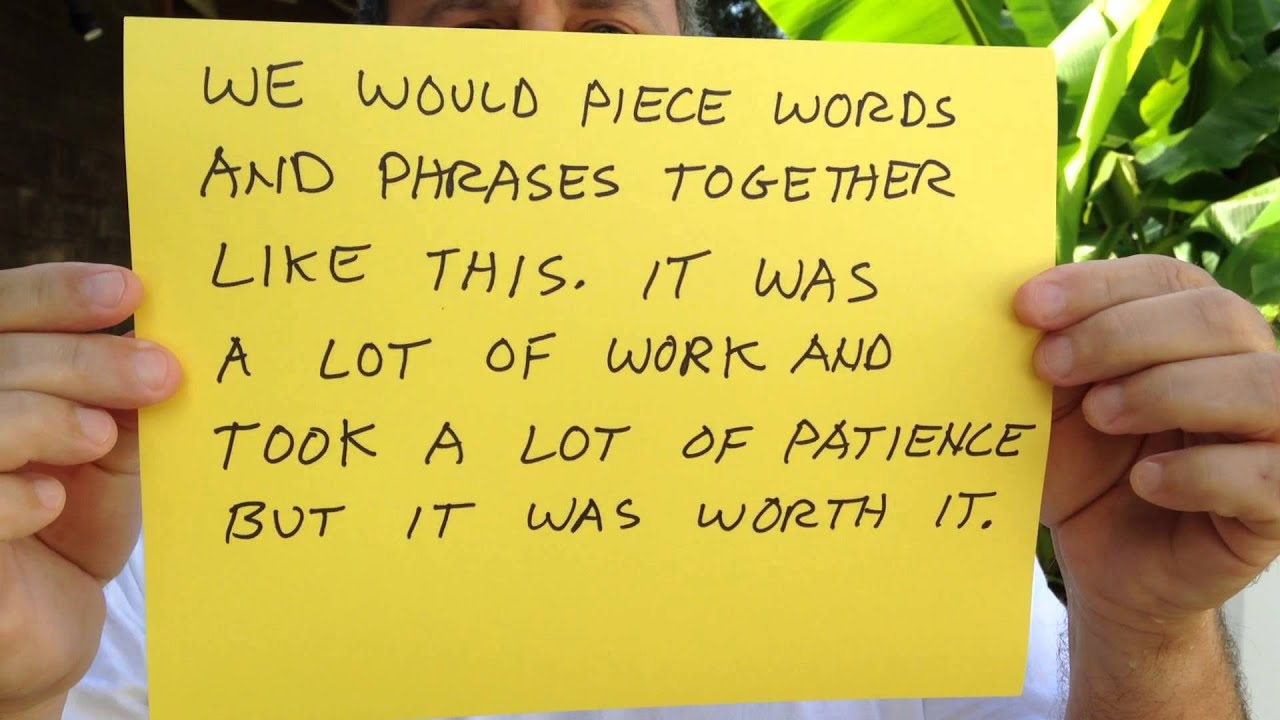 WE WOULD PIECE WORDS
AND PHRASES TOGETHER
LIKE THIS. IT WAS
A LOT OF WORK AND
TOOK A LOT OF PATIENCE
BUT IT WAS WORTH IT.